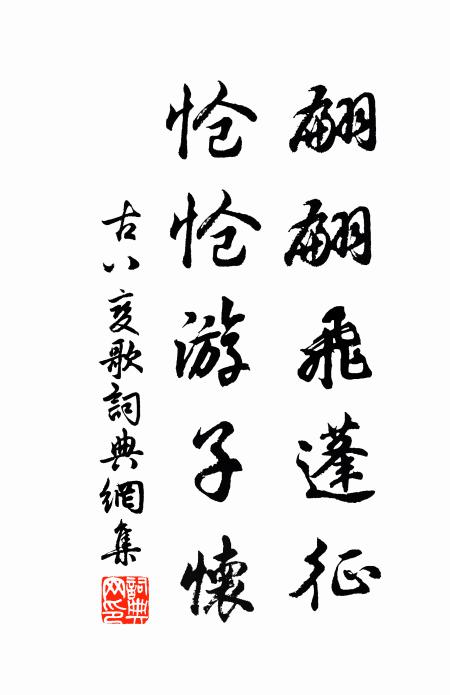 翩翩飛蓬征
怆怆游子懷
古八變歌詞典網集
詞典网印